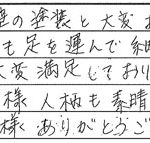 の塗装と大変お
も足を運んで
大変満足しており
様人柄も素晴
様ありがとうご